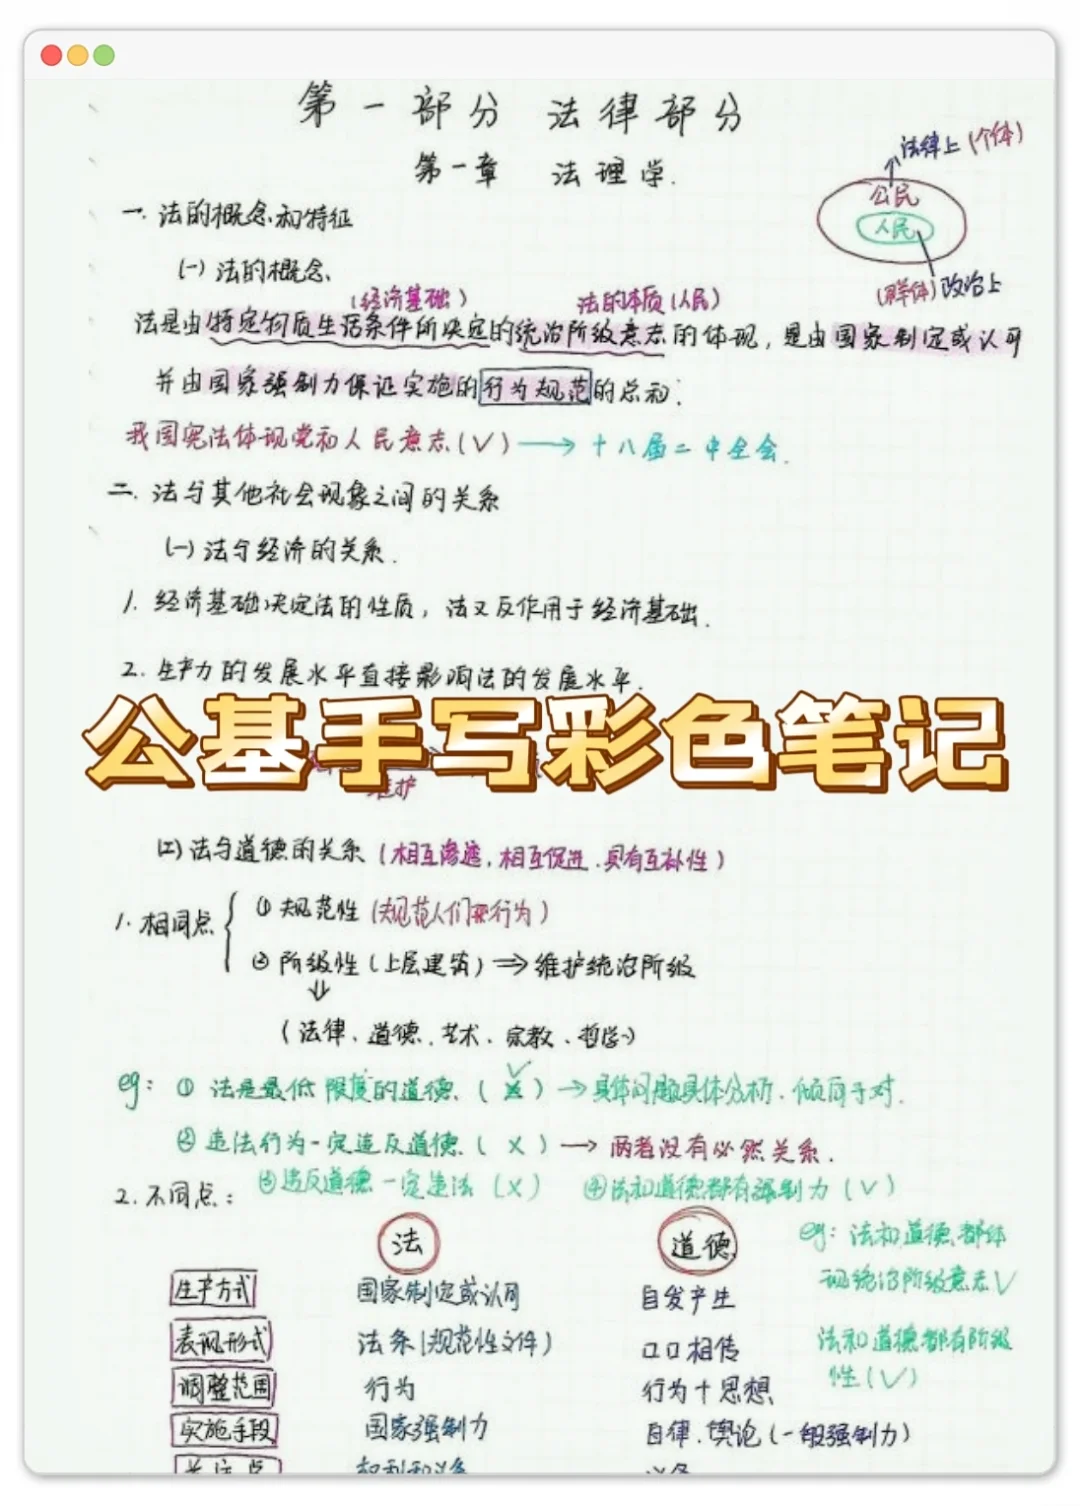 第一部分 法律部分
第一章 法理学.
法律上(个体)
公民
人民
(群体)政治上
一. 法的概念和特征
(一) 法的概念.
(经济基础) 法的本质(人民)
法是由特定物质生活条件所决定的统治阶级意志的体现, 是由国家制定或认可
并由国家强制力保证实施的行为规范的总和.
我国宪法体现党和人民意志(√) → 十八届二中全会.
二. 法与其他社会现象之间的关系
(一) 法与经济的关系.
1. 经济基础决定法的性质, 法又反作用于经济基础.
2. 生产力的发展水平直接影响法的发展水平.
公基手写彩色笔记
维护
(二) 法与道德的关系 (相互渗透, 相互促进. 具有互补性)
1. 相同点
① 规范性 (规范人们的行为)
② 阶级性 (上层建筑) ⇒ 维护统治阶级
⇓
(法律、道德、艺术、宗教、哲学)
eg: ① 法是最低限度的道德. ( √ ) → 具体问题具体分析. 倾向于对.
② 违法行为一定违反道德. ( × ) → 两者没有必然关系.
③ 违反道德一定违法 (×) ④ 法和道德都有强制力 (√)
2. 不同点:
法 道德
eg: 法和道德都体
现统治阶级意志√
法和道德都有阶级
性(√)
生产方式 国家制定或认可 自发产生
表现形式 法条(规范性文件) 口口相传
调整范围 行为 行为+思想
实施手段 国家强制力 自律. 舆论(一般强制力)
关注点 权利和义务 义务